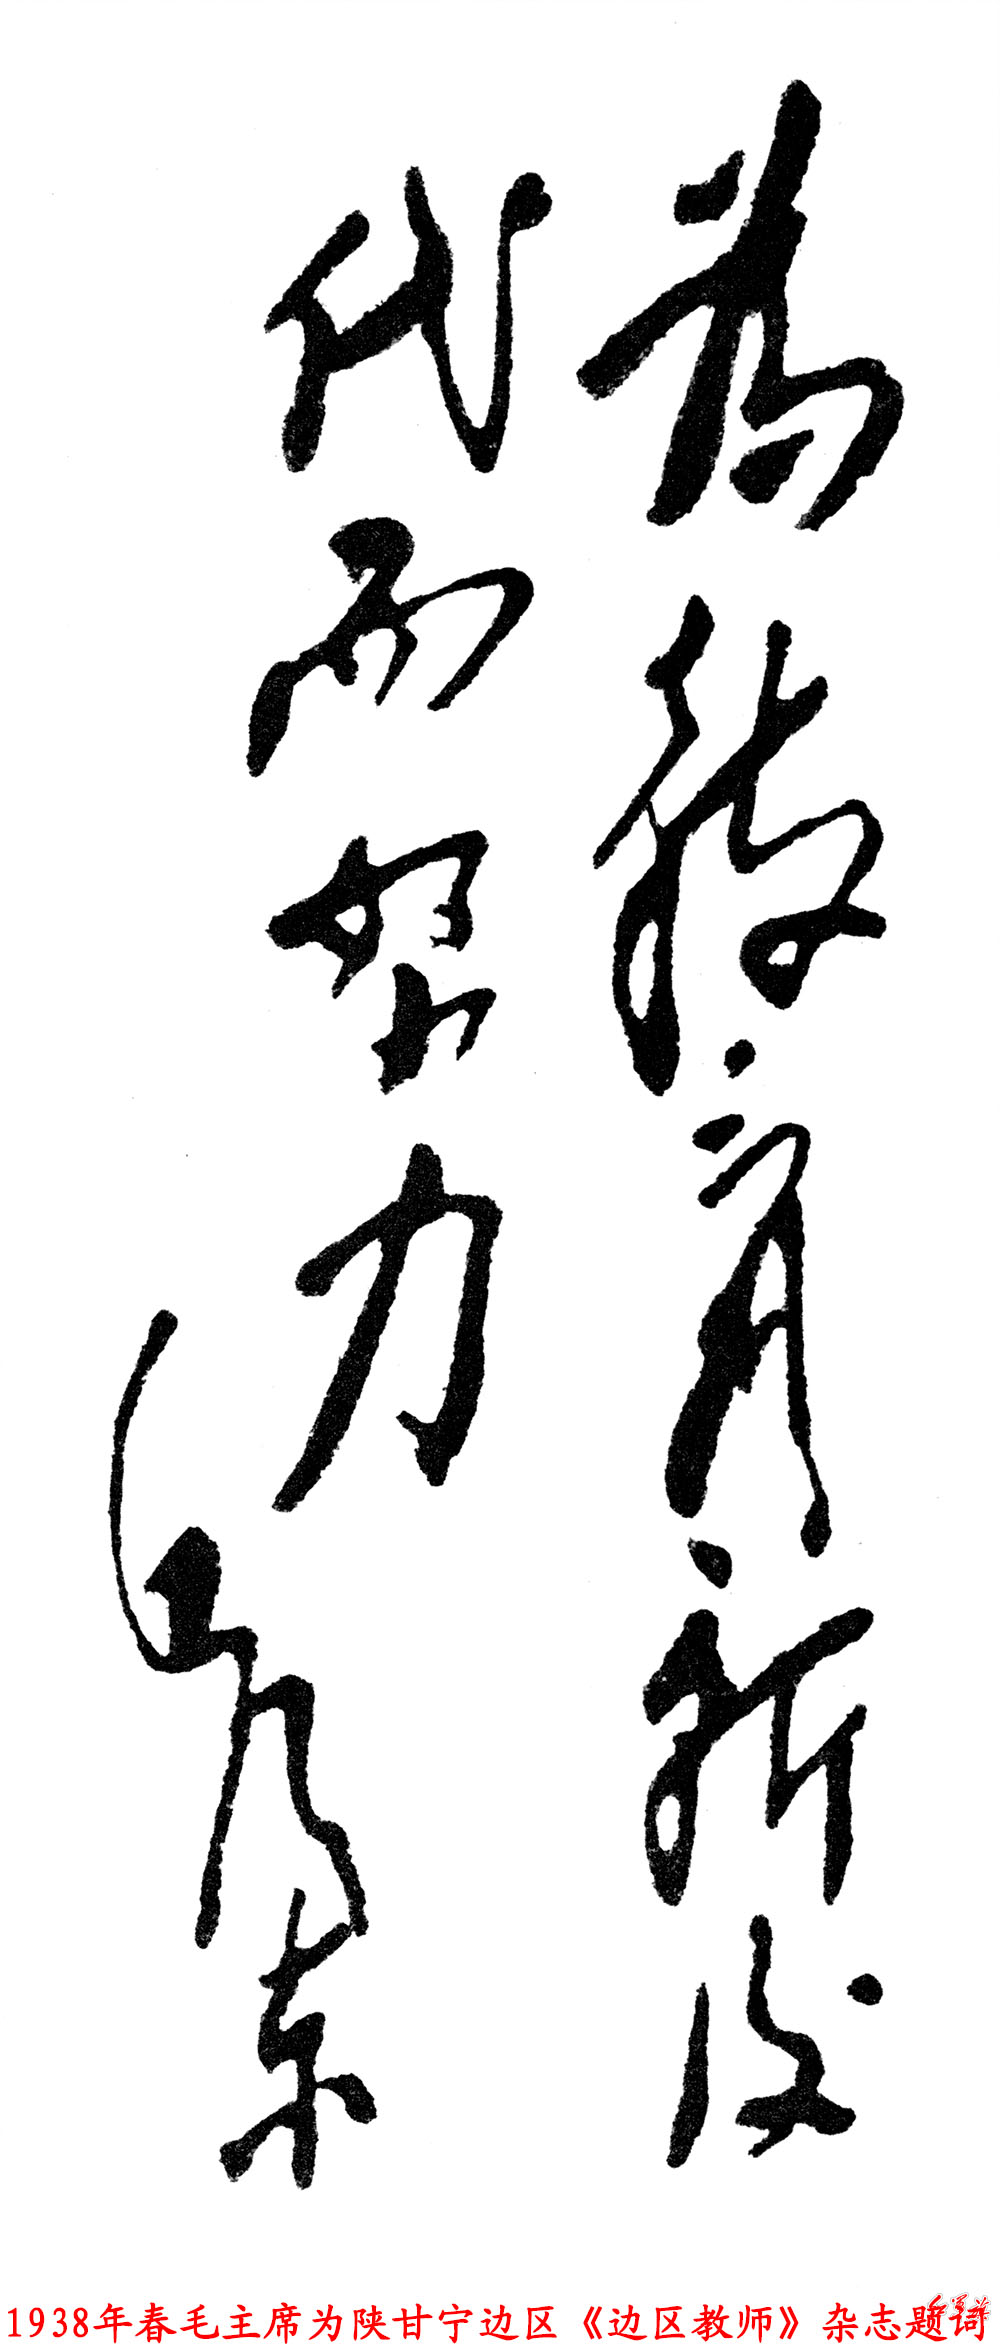 为教育新后
代而努力
毛泽东
1938年春毛主席为陕甘宁边区《边区教师》杂志题词